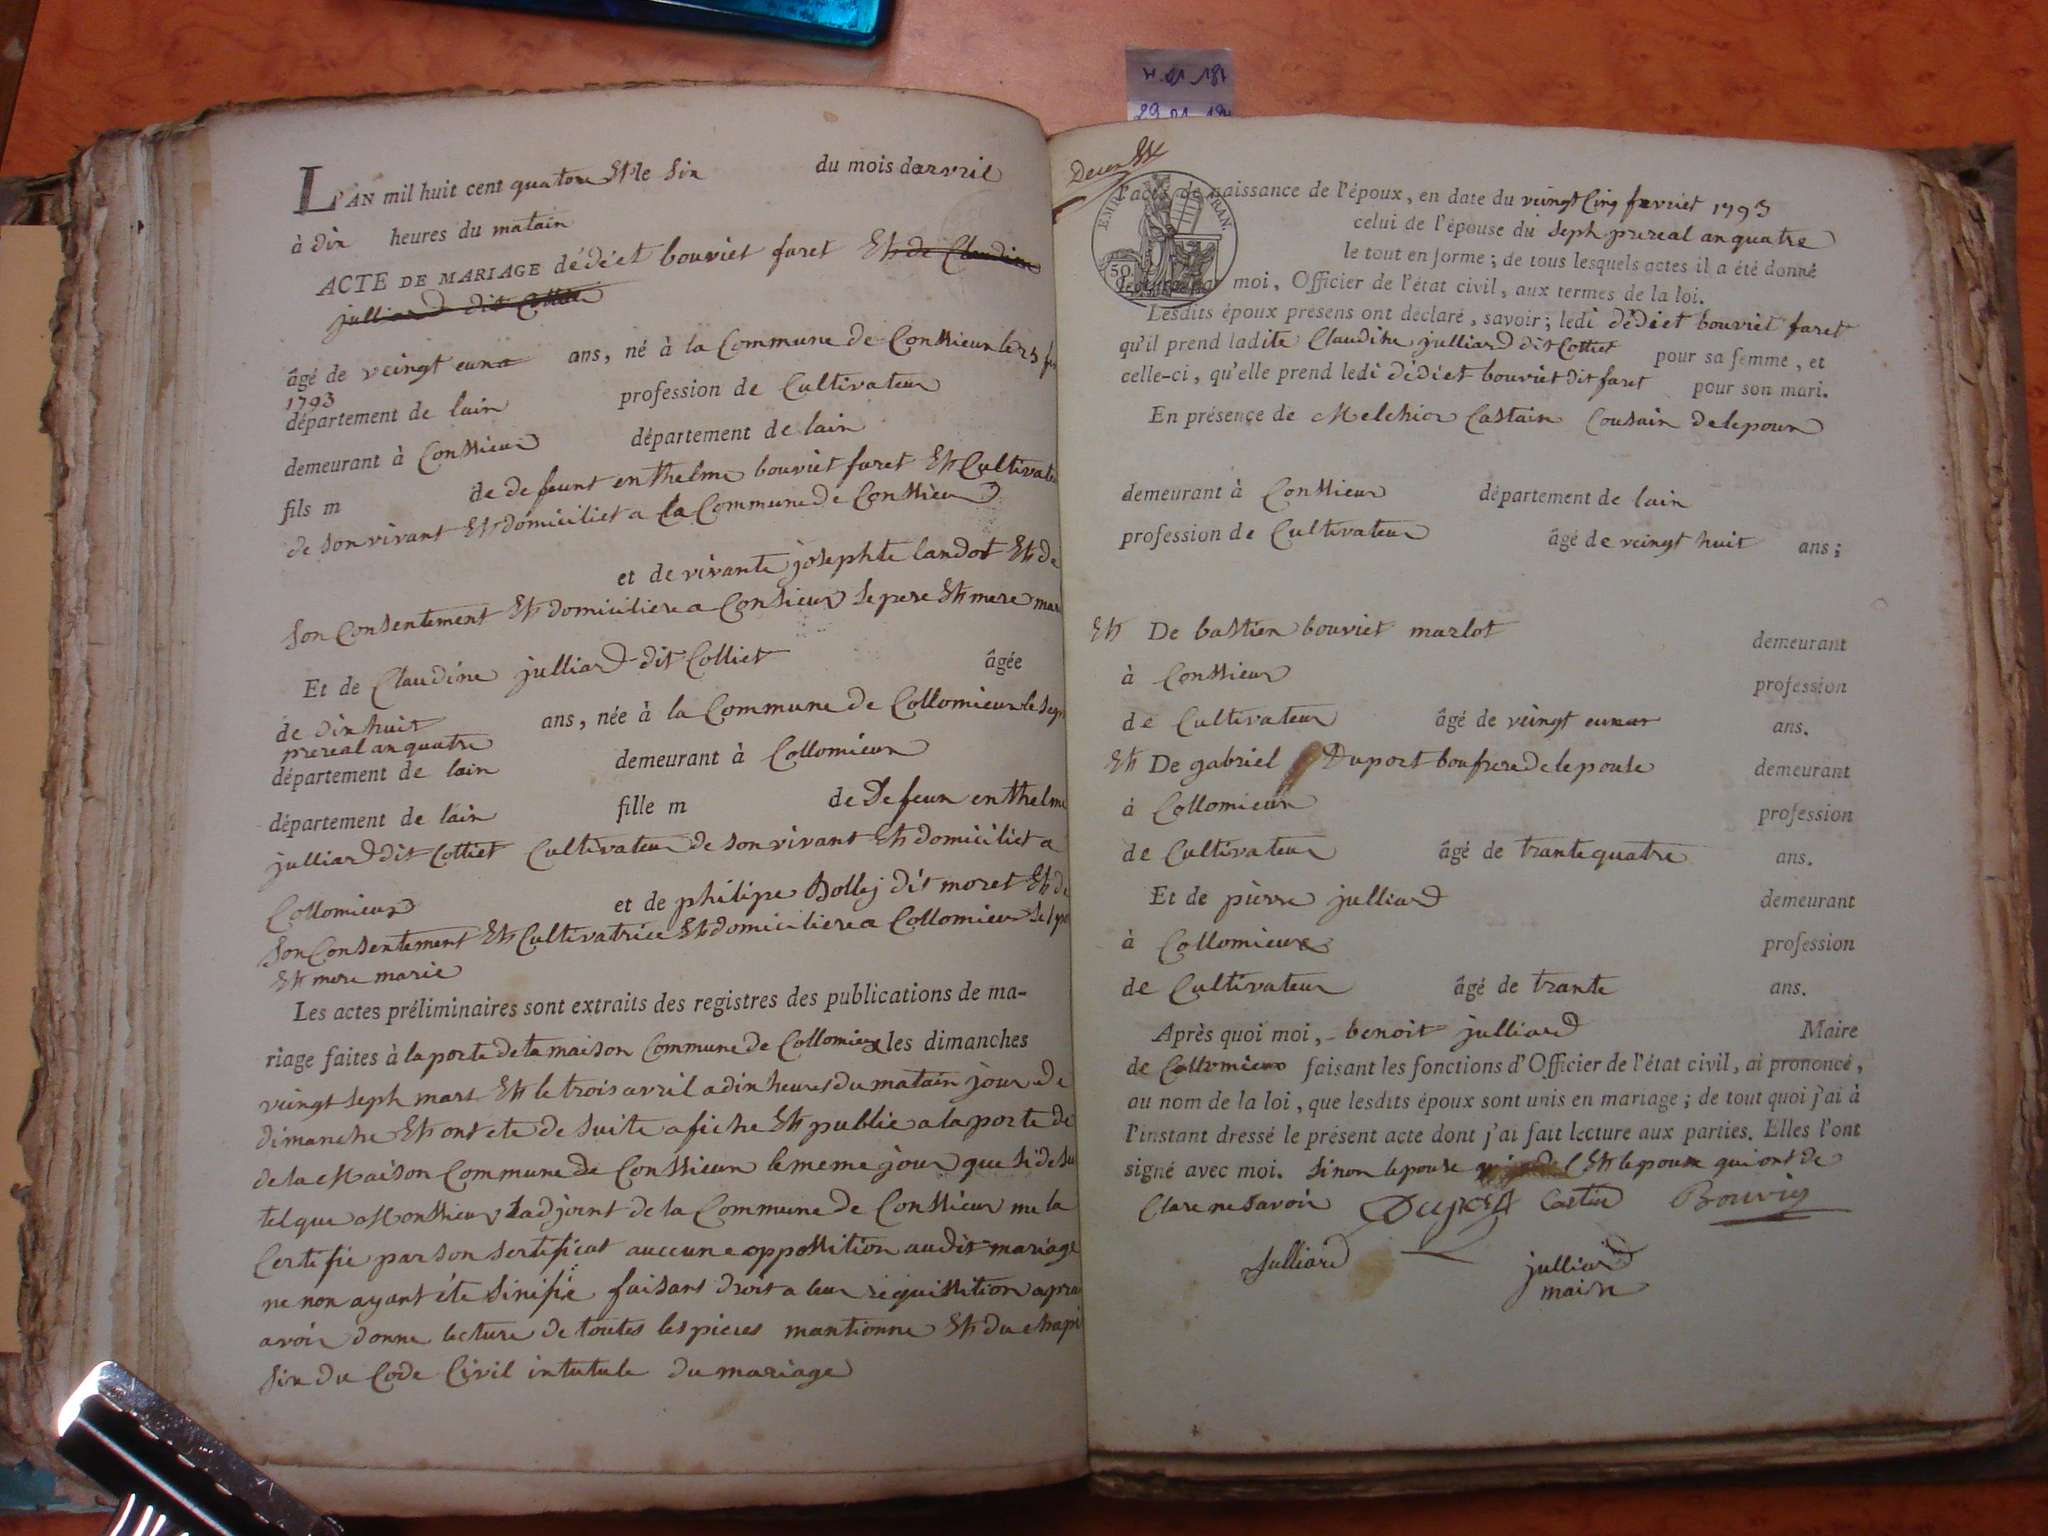 L'AN mil huit cent quatore Et le Six du mois davril
à dix heures du matain
ACTE DE MARIAGE dédéet bouviet faret Et de Claudine
julliard dit
âgé de veingt euna ans, né à la Commune de Conssieux le 25
1793
département de lain profession de Cultivateur
demeurant à Conssieux département de lain
fils m de defeunt enthelme bouviet faret Et Cultivate
de son vivant Et domiciliet a la Commune de Conssieux
et de vivante josephte landot Et de
Son Consentement Et domiciliere a Consieux Se pere Et mere mari
Et de Claudine julliard dit Colliet âgée
de dix huit ans, née à la Commune de Collomieux le Seph
prereal an quatre
département de lain demeurant à Collomieux
département de lain fille m de Defeun enthelme
julliard dit Colliet Cultivateur de Son vivant Et domiciliet a
Collomieux et de philipe Bollej dit moret Et de
Son Consentement Et Cultivatrice Et domiciliere a Collomieux
Et mere marie
Les actes préliminaires sont extraits des registres des publications de ma-
riage faites à la porte de la maison Commune de Collomieux les dimanches
veingt Seph mars Et le trois avril a dix heures du matain jour de
dimanche Et ont ete de Suite afiche Et publie a la porte de
de la Maison Commune de Conssieux le meme jour que Si de Su
tel que Monssieur Ladjoint de la Commune de Conssieux me la
Certifie par Son Sertificat auccune oppossition audit mariage
ne non ayant été Sinifié faisant droit a leur requissition apra
avoir donne lecture de toutes les pieces mantionne Et du chapi
Six du Code Civil intutule du mariage
l'acte de naissance de l'époux, en date du veingt Cinq fevriet 1793
celui de l'épouse du Seph prereal an quatre
le tout en forme; de tous lesquels actes il a été donné
lecture par moi, Officier de l'état civil, aux termes de la loi.
EMP. FRAN.
50
Lesdits époux présens ont déclaré, savoir; ledi dédéet bouviet faret
qu'il prend ladite Claudine julliard dit Colliet pour sa femme, et
celle-ci, qu'elle prend ledi dédéet bouviet dit faret pour son mari.
En présence de Melchior Castain Cousain de lepoux
demeurant à Conssieux département de lain
profession de Cultivateur âgé de veingt huit ans;
Et De bastien bouviet marlot demeurant
à Conssieux profession
de Cultivateur âgé de veingt eunar ans.
Et De gabriel Duport boufrere de lepouse demeurant
à Collomieux profession
de Cultivateur âgé de trante quatre ans.
Et de pierre julliard demeurant
à Collomieux profession
de Cultivateur âgé de trante ans.
Après quoi moi, benoit julliard Maire
de Collomieux faisant les fonctions d'Officier de l'état civil, ai prononcé,
au nom de la loi, que lesdits époux sont unis en mariage; de tout quoi j'ai à
l'instant dressé le présent acte dont j'ai fait lecture aux parties. Elles l'ont
signé avec moi. Sinon lepouse Et lepoux qui ont de
Clare ne Savoir Duport Castin Bouvier
Julliard julliard
maire